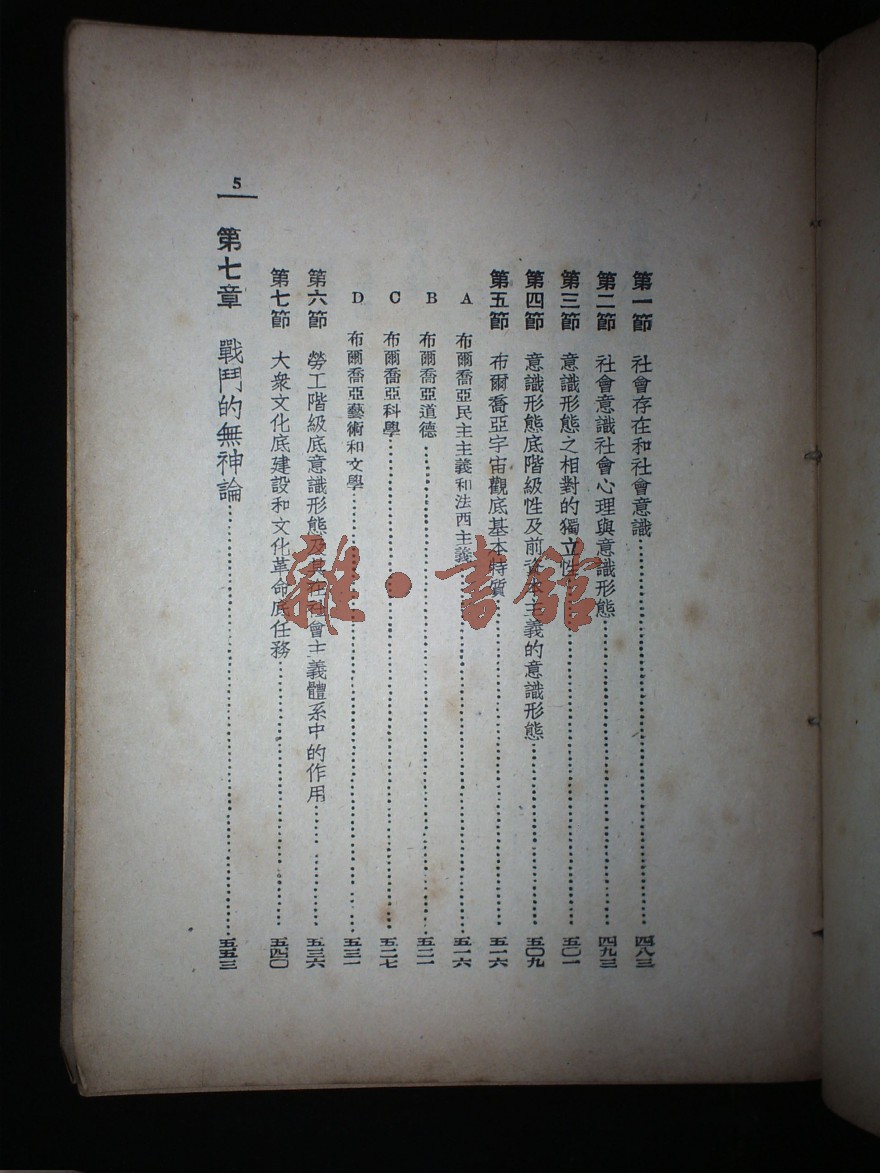 第一節 社會存在和社會意識……四八三
第二節 社會意識社會心理與意識形態……四九三
第三節 意識形態之相對的獨立性……五〇一
第四節 意識形態底階級性及前資本主義的意識形態……五〇九
第五節 布爾喬亞宇宙觀底基本特質……五一六
A 布爾喬亞民主主義和法西主義……五一六
B 布爾喬亞道德……五二一
C 布爾喬亞科學……五二七
D 布爾喬亞藝術和文學……五三一
第六節 勞工階級底意識形態及其在社會主義體系中的作用……五三六
第七節 大衆文化底建設和文化革命底任務……五四〇
第七章 戰鬥的無神論……五五三
5
雜·書館